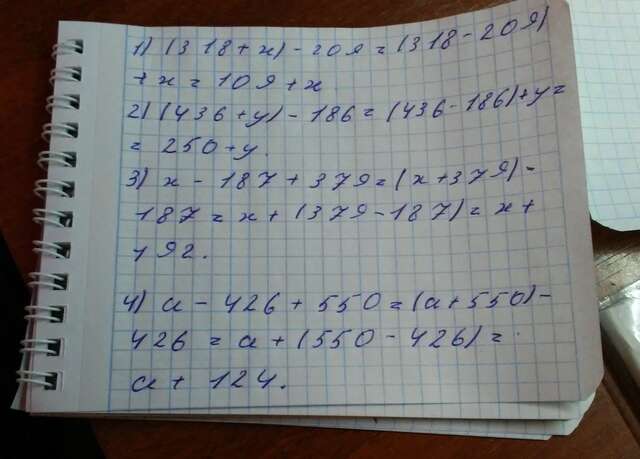 1) (318+x)-209=(318-209)
+x=109+x
2) (436+y)-186=(436-186)+y=
=250+y.
3) x-187+379=(x+379)-
187=x+(379-187)=x+
192.
4) a-426+550=(a+550)-
426=a+(550-426)=
a+124.